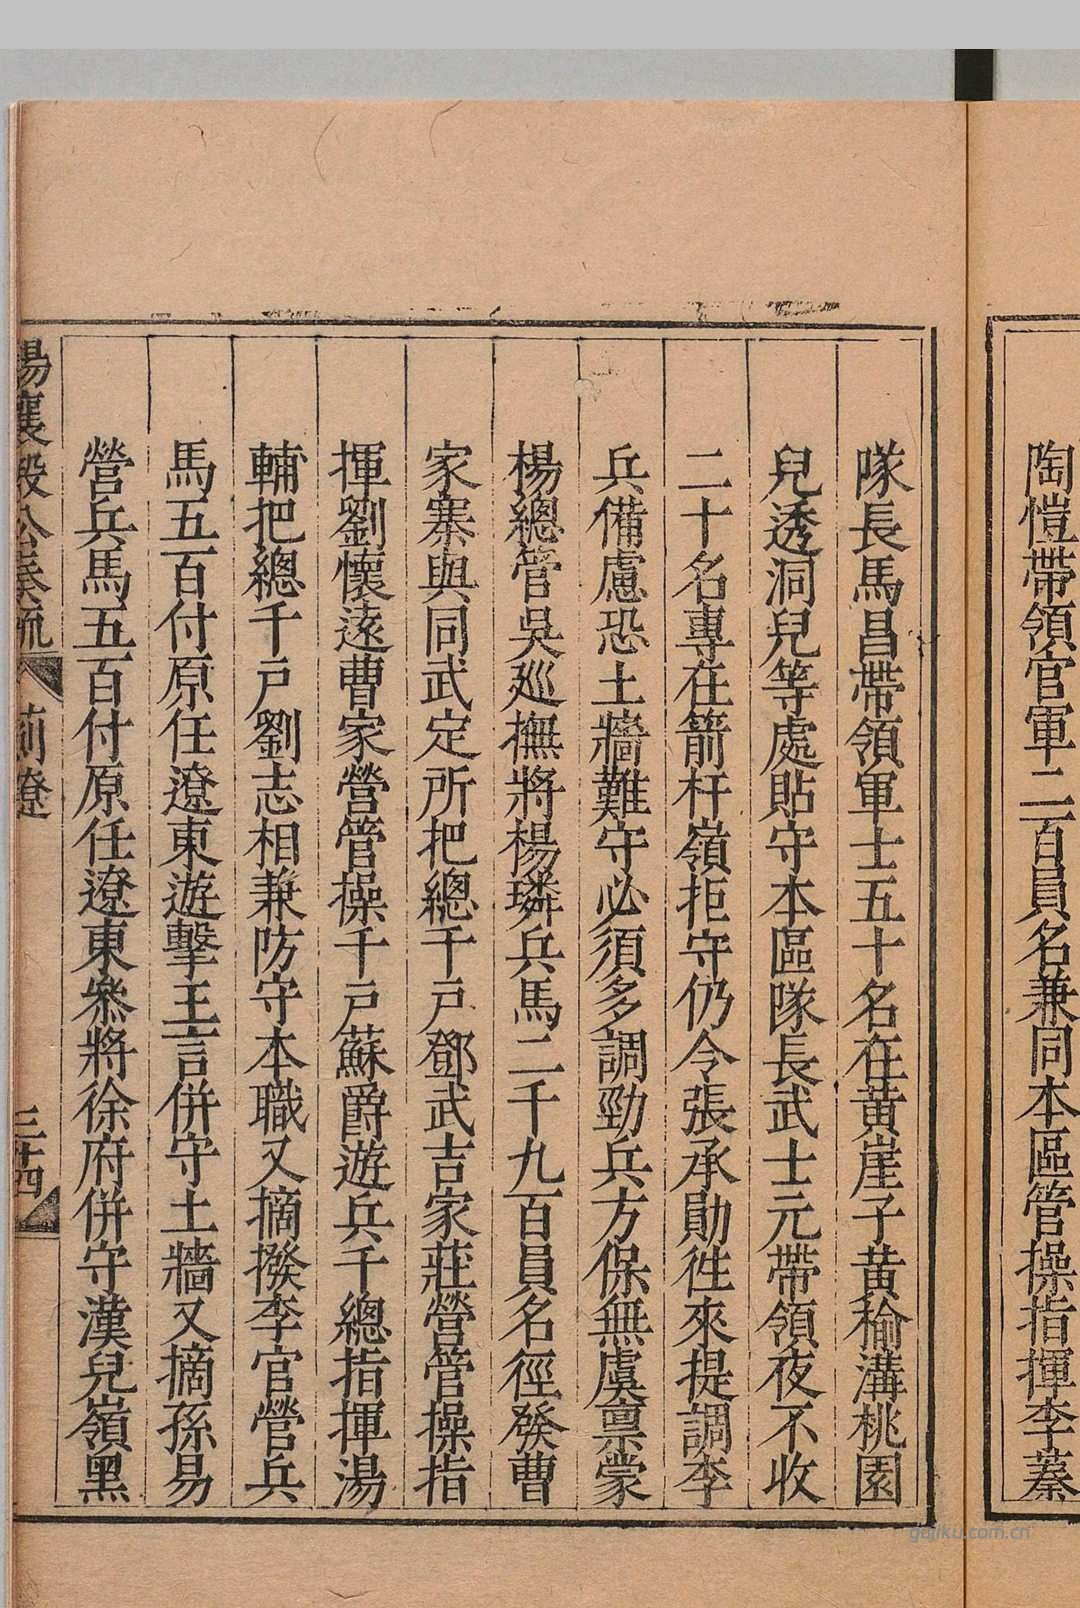 陶愷帶領官軍二百員名兼同本區管操指揮李蓁
隊長馬昌帶領軍士五十名在黃崖子黃榆溝桃園
兒透洞兒等處貼守本區隊長武士元帶領夜不收
二十名專在箭杆嶺拒守仍令張承勛徃來提調李
兵備慮恐土牆難守必須多調勁兵方保無虞禀蒙
楊總管吳廵撫將楊璘兵馬二千九百員名徑發曹
家寨與同武定所把總千戸鄧武吉家莊營管操指
揮劉懷遠曹家營管操千戸蘇爵遊兵千總指揮湯
輔把總千戸劉志相兼防守本職又摘撥李官營兵
馬五百付原任遼東遊擊王言併守土牆又摘孫易
營兵馬五百付原任遼東叅將徐府併守漢兒嶺黑
楊襄毅公奏疏 薊遼 三十四
gujiku.com.cn